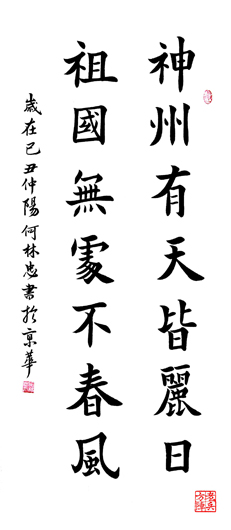 神州有天皆麗日
祖國無處不春風
歲在己丑仲陽何林忠書於京華